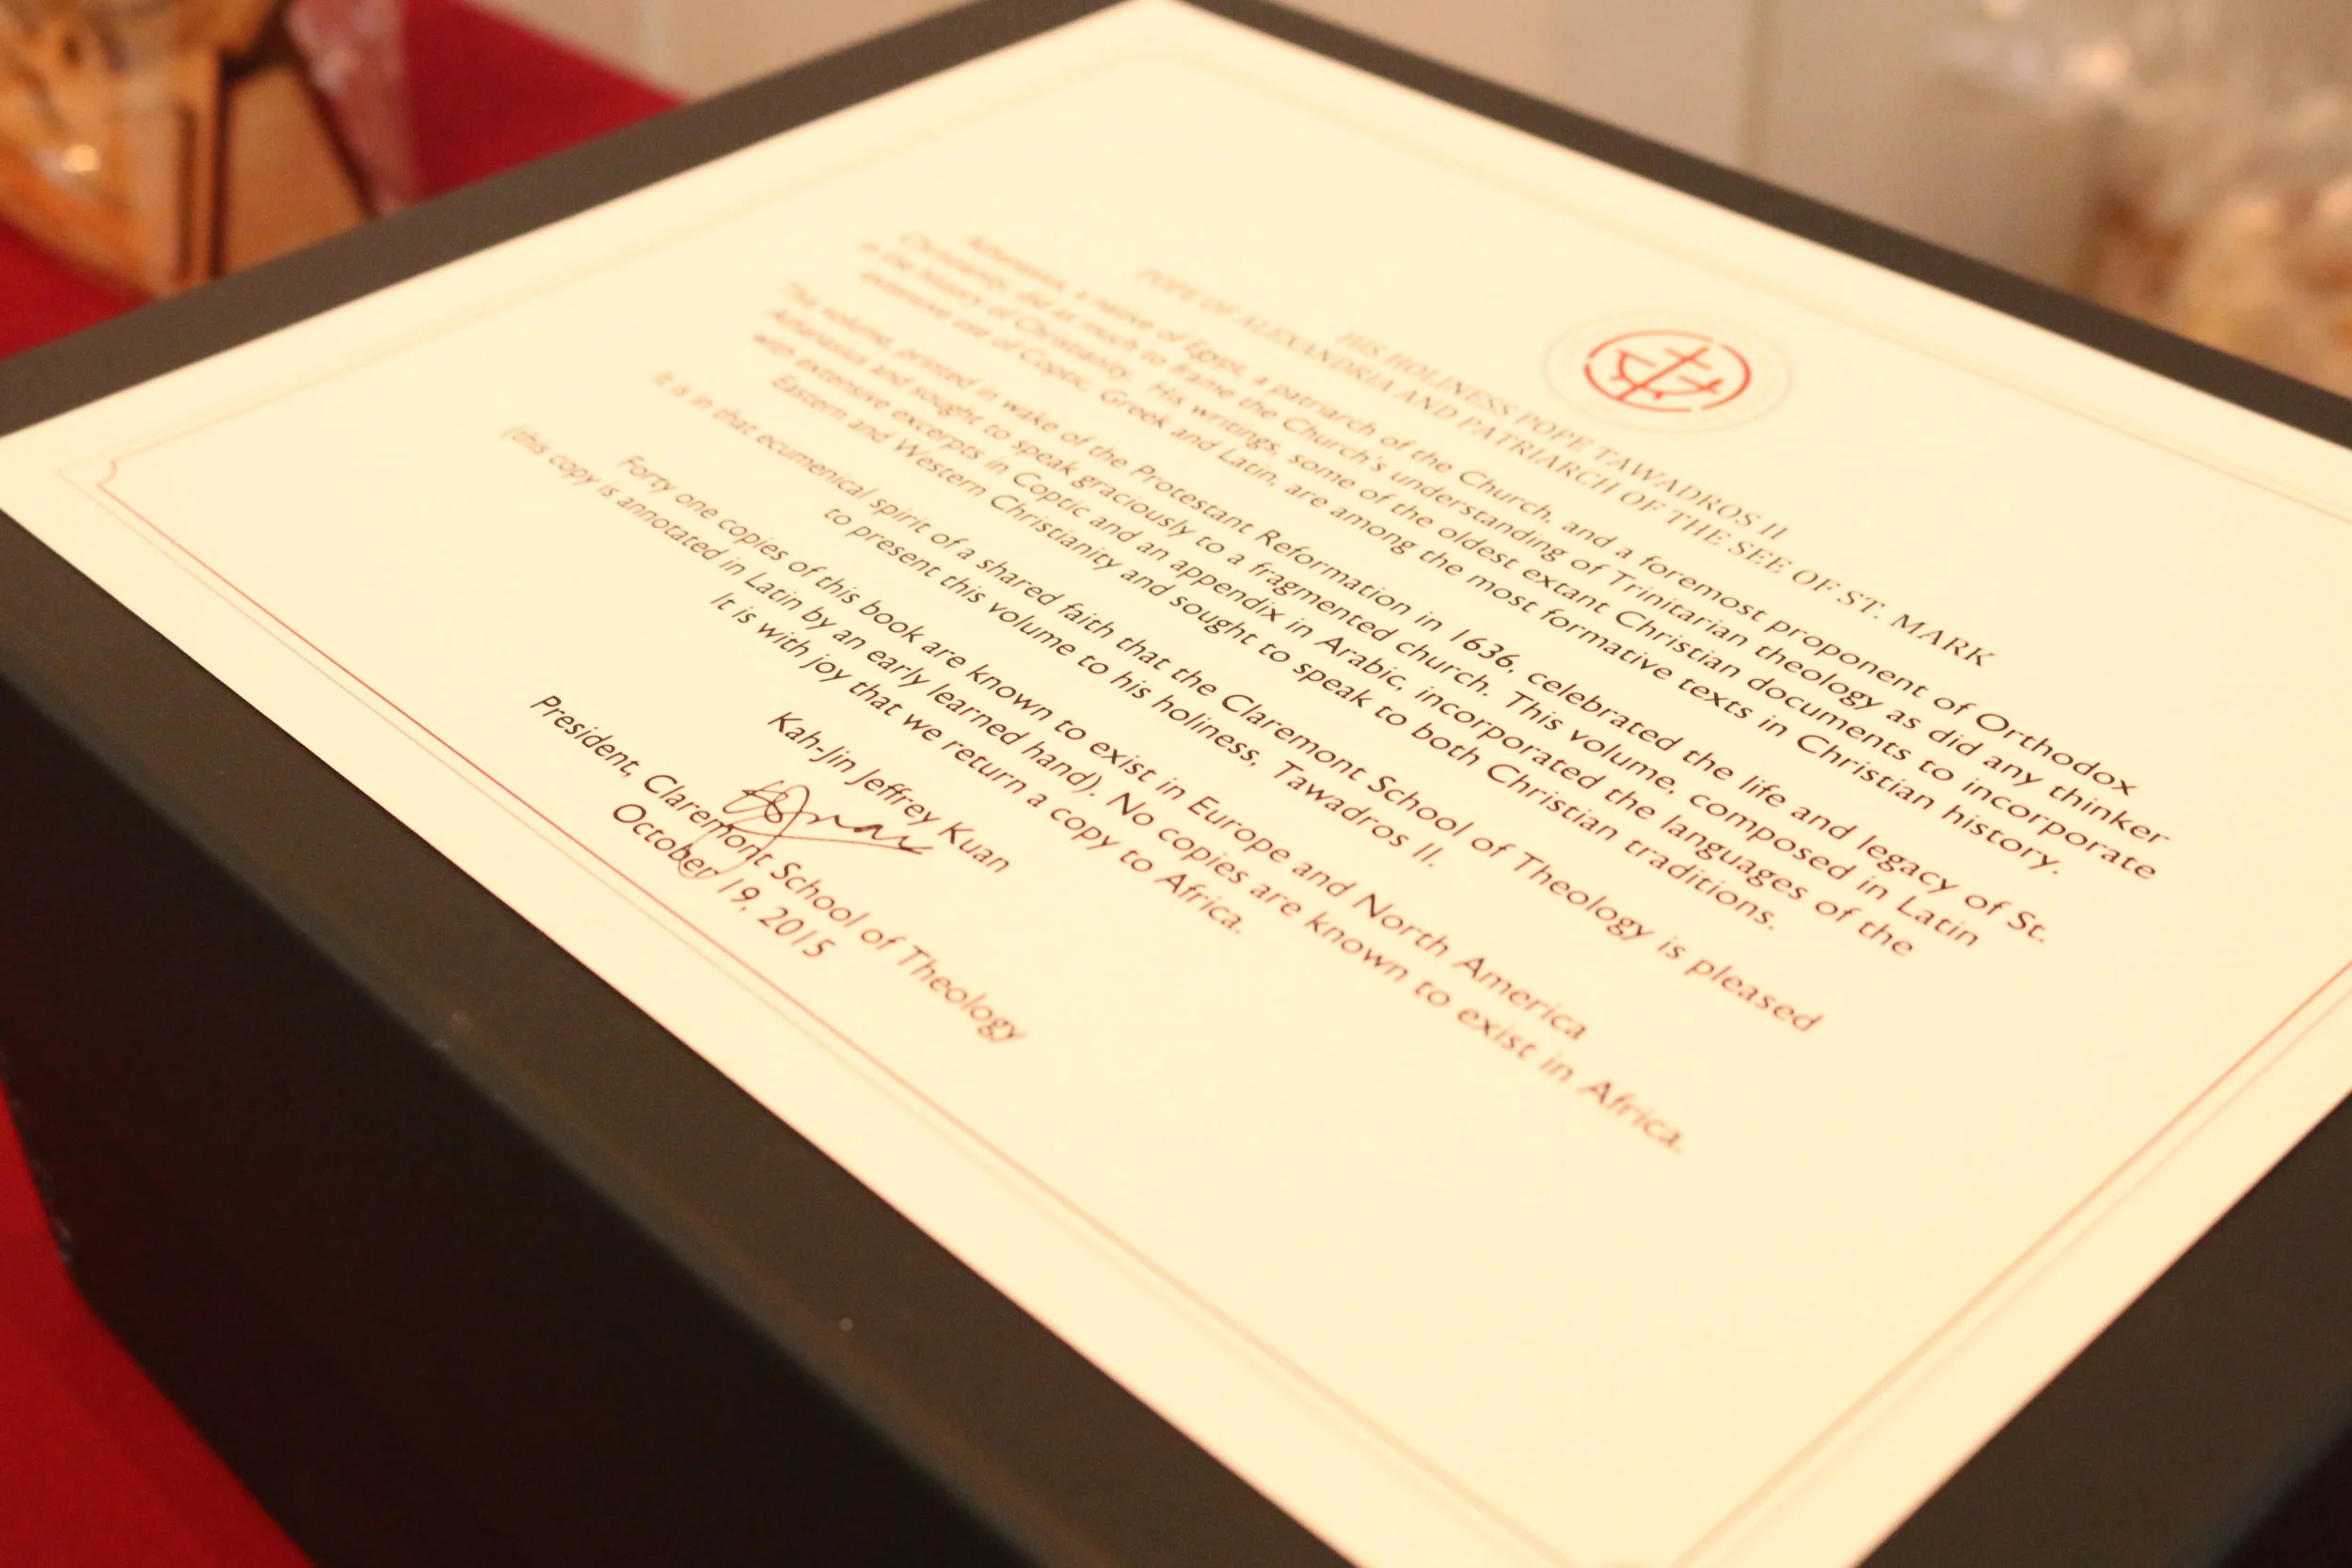 HIS HOLINESS POPE TAWADROS II
POPE OF ALEXANDRIA AND PATRIARCH OF THE SEE OF ST. MARK
Athanasius, a native of Egypt, a patriarch of the Church, and a foremost proponent of Orthodox
Christianity, did as much to frame the Church's understanding of Trinitarian theology as did any thinker
in the history of Christianity. His writings, some of the oldest extant Christian documents to incorporate
extensive use of Coptic, Greek and Latin, are among the most formative texts in Christian history.
This volume, printed in wake of the Protestant Reformation in 1636, celebrated the life and legacy of St.
Athanasius and sought to speak graciously to a fragmented church. This volume, composed in Latin
with extensive excerpts in Coptic and an appendix in Arabic, incorporated the languages of the
Eastern and Western Christianity and sought to speak to both Christian traditions.
It is in that ecumenical spirit of a shared faith that the Claremont School of Theology is pleased
to present this volume to his holiness, Tawadros II.
Forty one copies of this book are known to exist in Europe and North America
(this copy is annotated in Latin by an early learned hand). No copies are known to exist in Africa.
It is with joy that we return a copy to Africa.
Kah-Jin Jeffrey Kuan
President, Claremont School of Theology
October 19, 2015